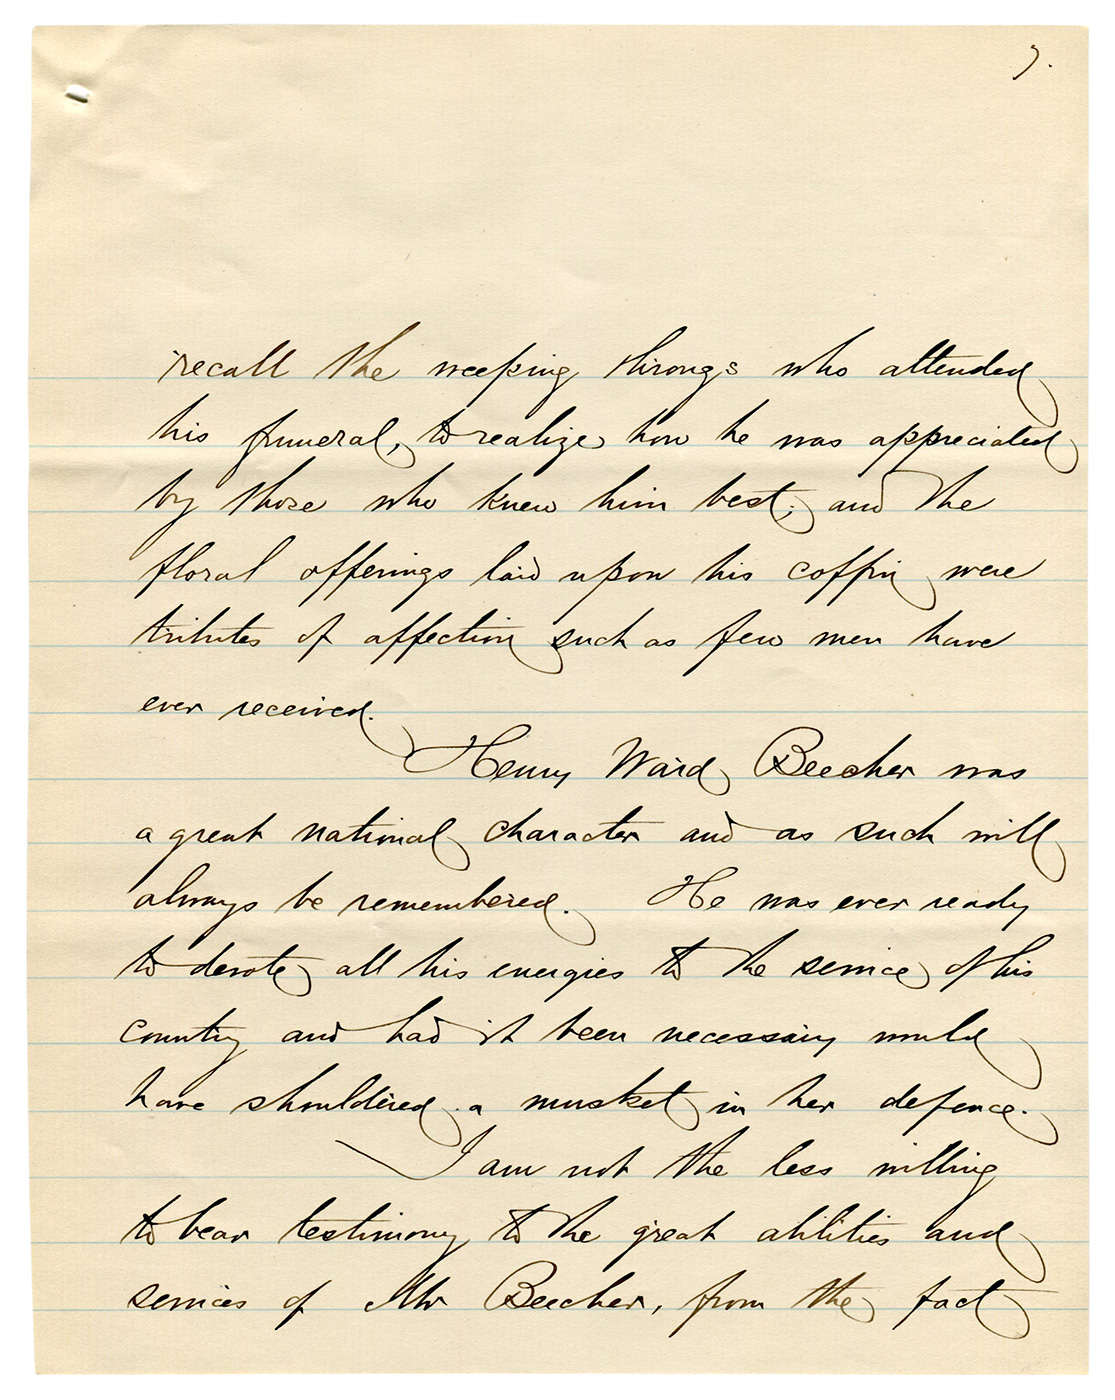 7.
recall the weeping throngs who attended
his funeral, to realize how he was appreciated
by those who knew him best; and the
floral offerings laid upon his coffin were
tributes of affection such as few men have
ever received.
Henry Ward Beecher was
a great national character and as such will
always be remembered. He was ever ready
to devote all his energies to the service of his
country and had it been necessary would
have shouldered a musket in her defence.
I am not the less willing
to bear testimony to the great abilities and
services of Mr Beecher, from the fact